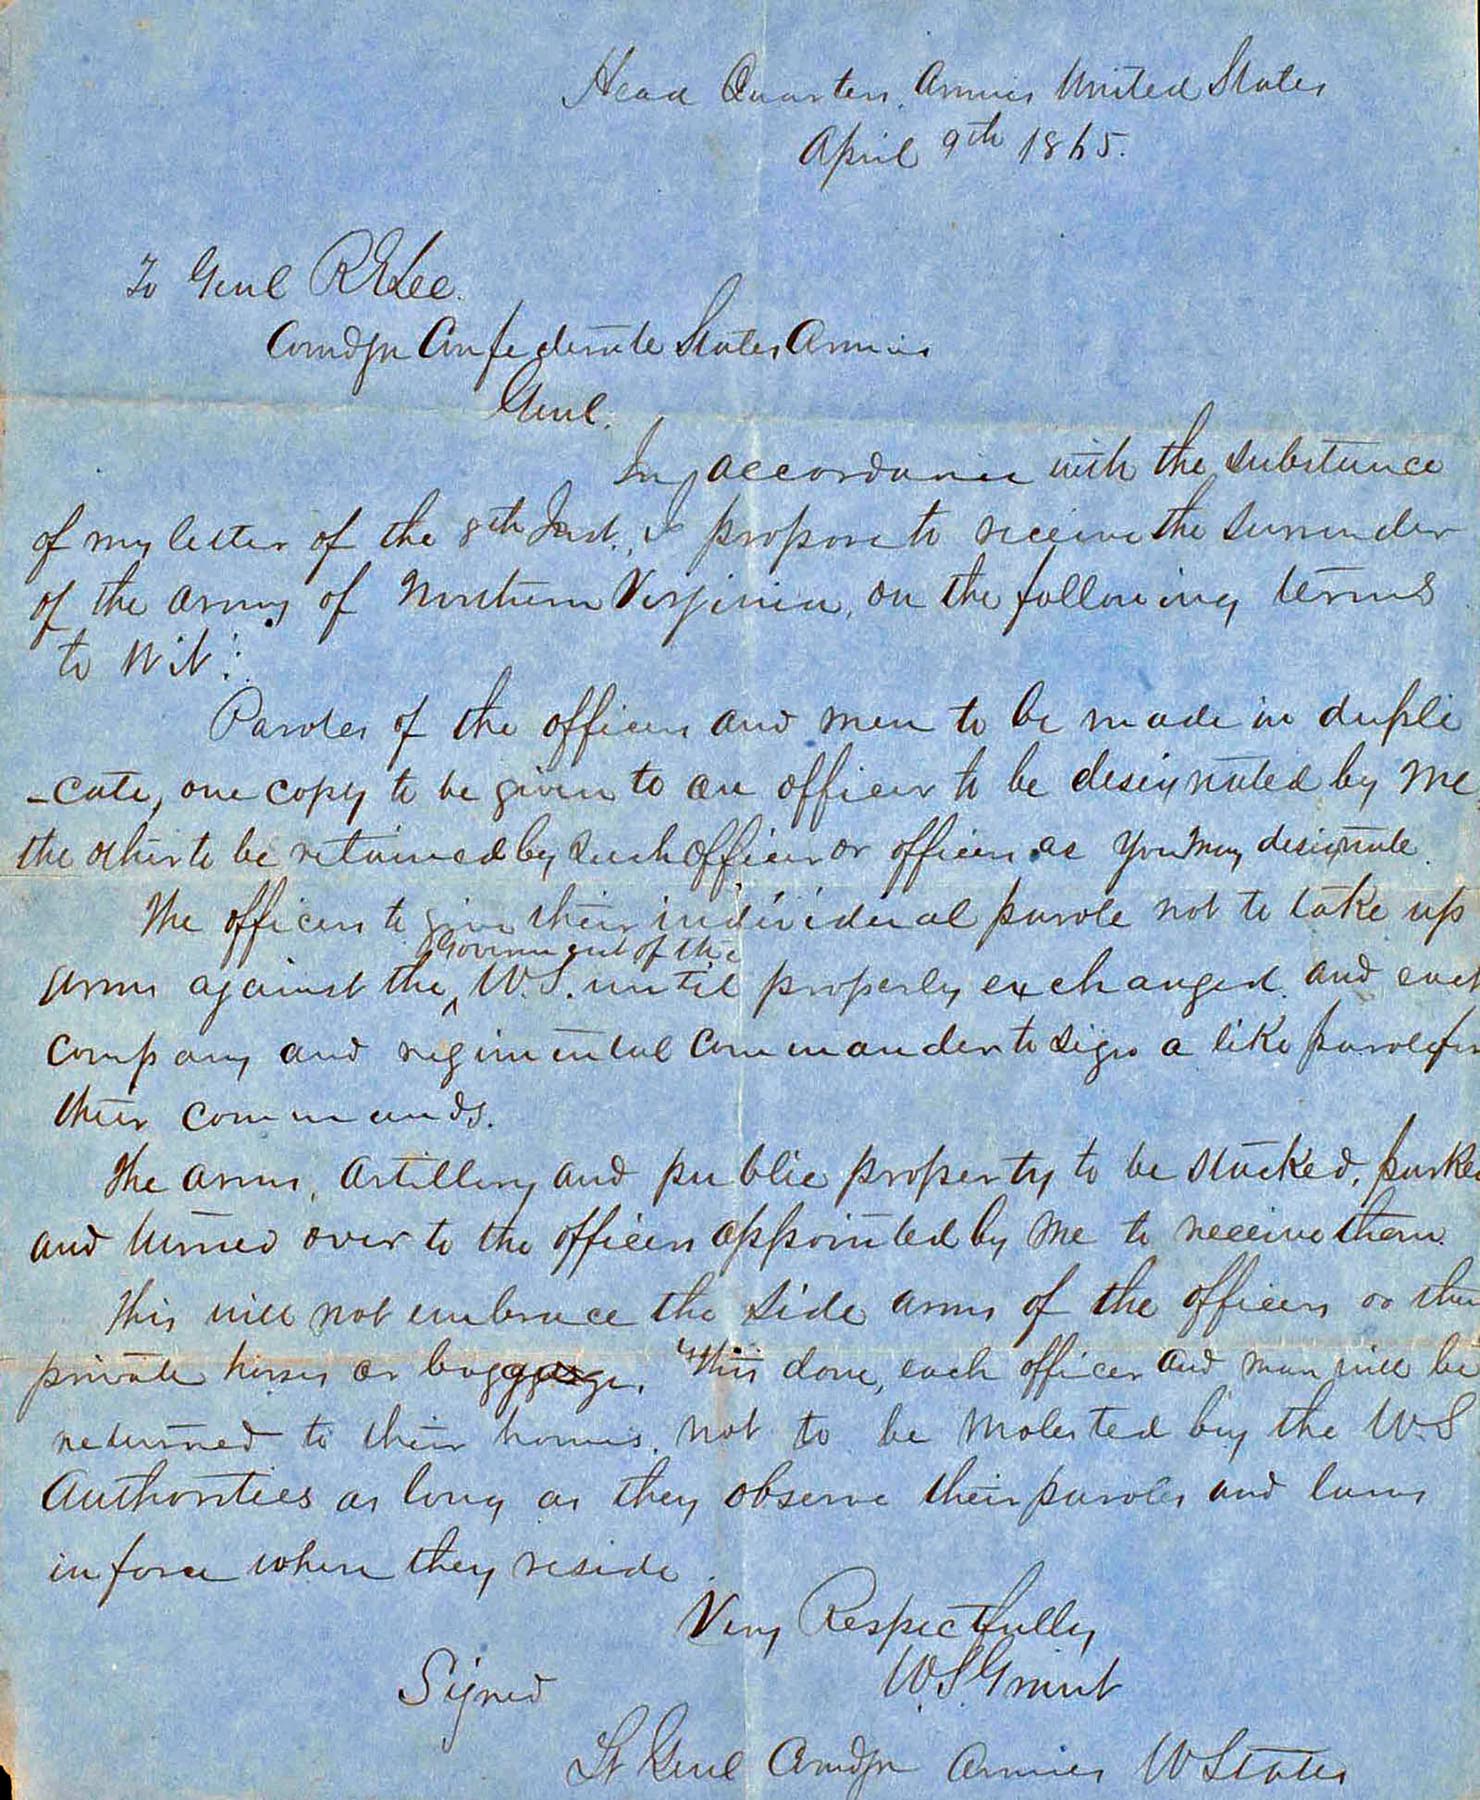 Head Quarters. Armies United States
April 9th 1865.
To Genl R E Lee.
Comdgn Confederate States Armies
Genl.
In accordance with the substance
of my letter of the 8th Inst., I propose to receive the surrender
of the army of Northern Virginia, on the following terms
to Wit:
Paroles of the officers and men to be made in dupli
-cate, one copy to be given to an officer to be designated by me
the other to be retained by such officer or officers as you may designate.
The officers to give their individual parole not to take up
Government of the
arms against the ^ U.S. until properly exchanged. and each
company and regimental commander to sign a like parole for
their commands.
The arms, artillery and public property to be stacked, parked
and turned over to the officers appointed by me to receive them.
This will not embrace the side arms of the officers or their
private horses or baggage. This done, each officer and man will be
returned to their homes, not to be molested by the U.S
Authorities as long as they observe their paroles and laws
in force where they reside.
Very Respectfully
Signed U.S. Grant
Lt Genl Comdgn Armies U States